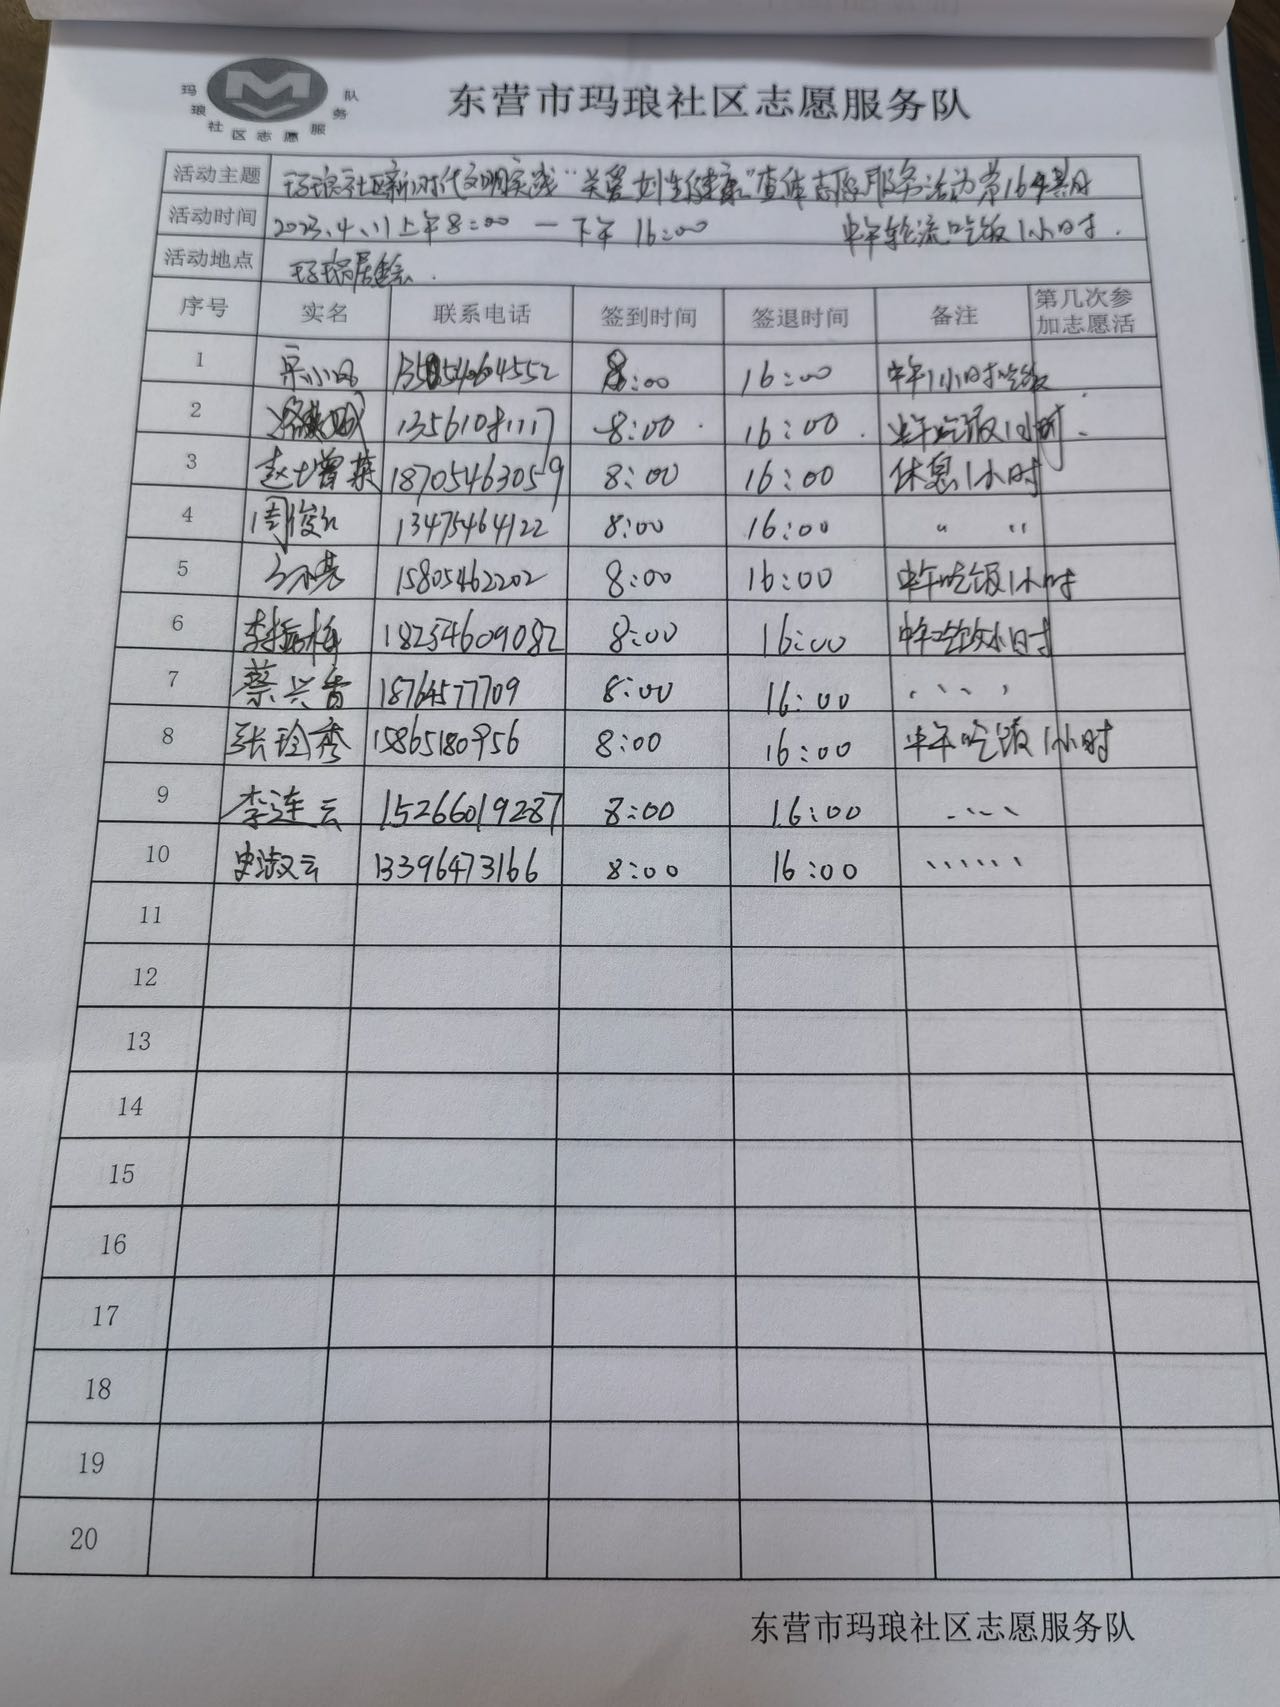 玛琅社区志愿服务队
东营市玛琅社区志愿服务队
活动主题 玛琅社区新时代文明实践“关爱妇女健康”查体志愿服务活动第164期
活动时间 2023.4.11上午8:00 — 下午16:00 中午轮流吃饭1小时.
活动地点 玛琅居委会.
序号 实名 联系电话 签到时间 签退时间 备注 第几次参加志愿活
1 8:00 16:00 中午1小时吃饭
2 13561081117 8:00 16:00 中午吃饭1小时.
3 赵士曾荣 18705463059 8:00 16:00 休息1小时
4 周俊红 13475464122 8:00 16:00 〃 〃
5 15805462202 8:00 16:00 中午吃饭1小时
6 李振梅 18254609082 8:00 16:00 中午吃饭1小时
7 蔡兴香 18764577709 8:00 16:00 、、、、
8 张玲秀 15865180956 8:00 16:00 中午吃饭1小时
9 李连云 15266019287 8:00 16:00 、、、、
10 史淑云 13396473166 8:00 16:00 、、、、、、
11
12
13
14
15
16
17
18
19
20
东营市玛琅社区志愿服务队